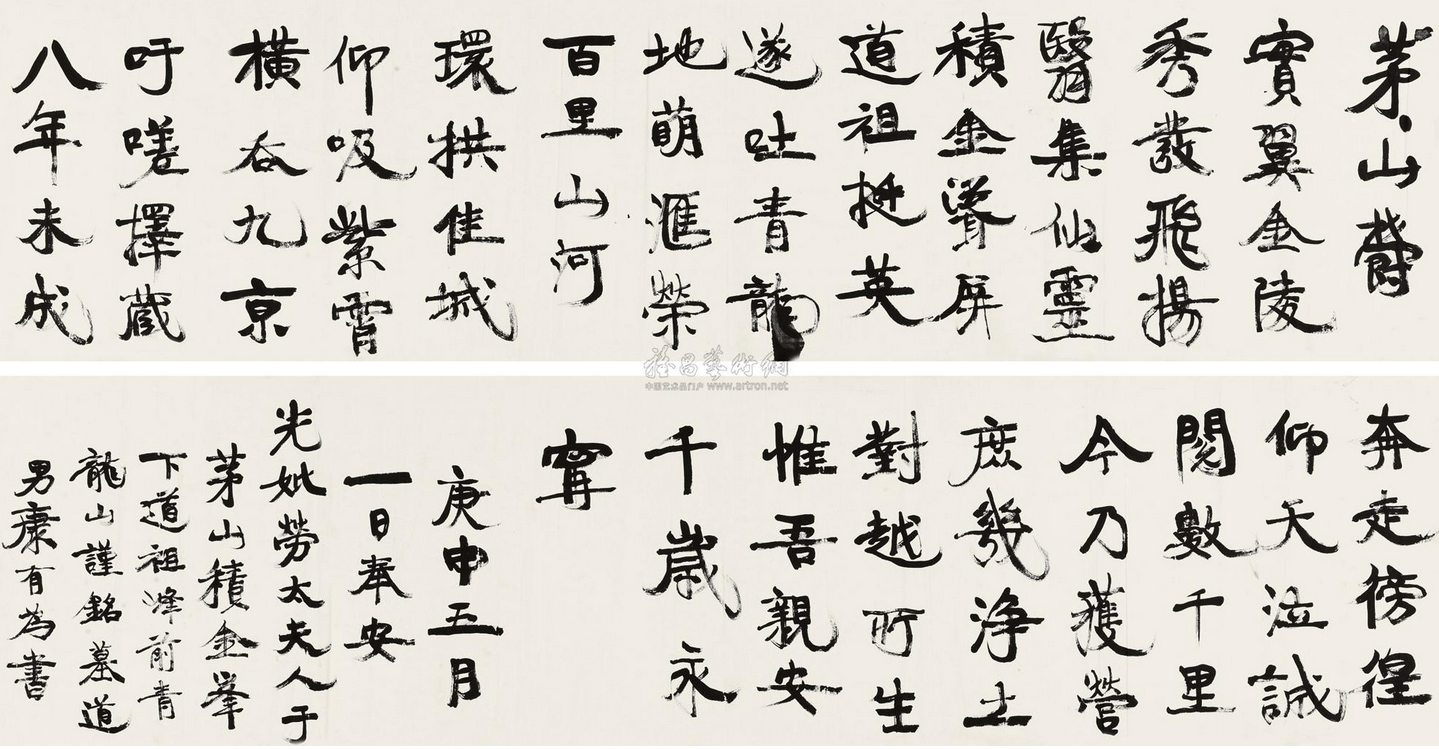 茅山鬱
實翼金陵
秀發飛揚
翳集仙靈
積金聳屏
道祖挺英
遂吐青龍
地萌滙榮
百里山河
環拱佳城
仰吸紫霄
橫吞九京
吁嗟擇藏
八年未成
奔走徬徨
仰天泣誠
閱數千里
今乃獲營
庶幾淨土
對越所生
惟吾親安
千歲永
寧
庚申五月
一日奉安
先妣勞太夫人于
茅山積金峯
下道祖峰前青
龍山謹銘墓道
男康有為書
中国艺术品门户 www.artron.net